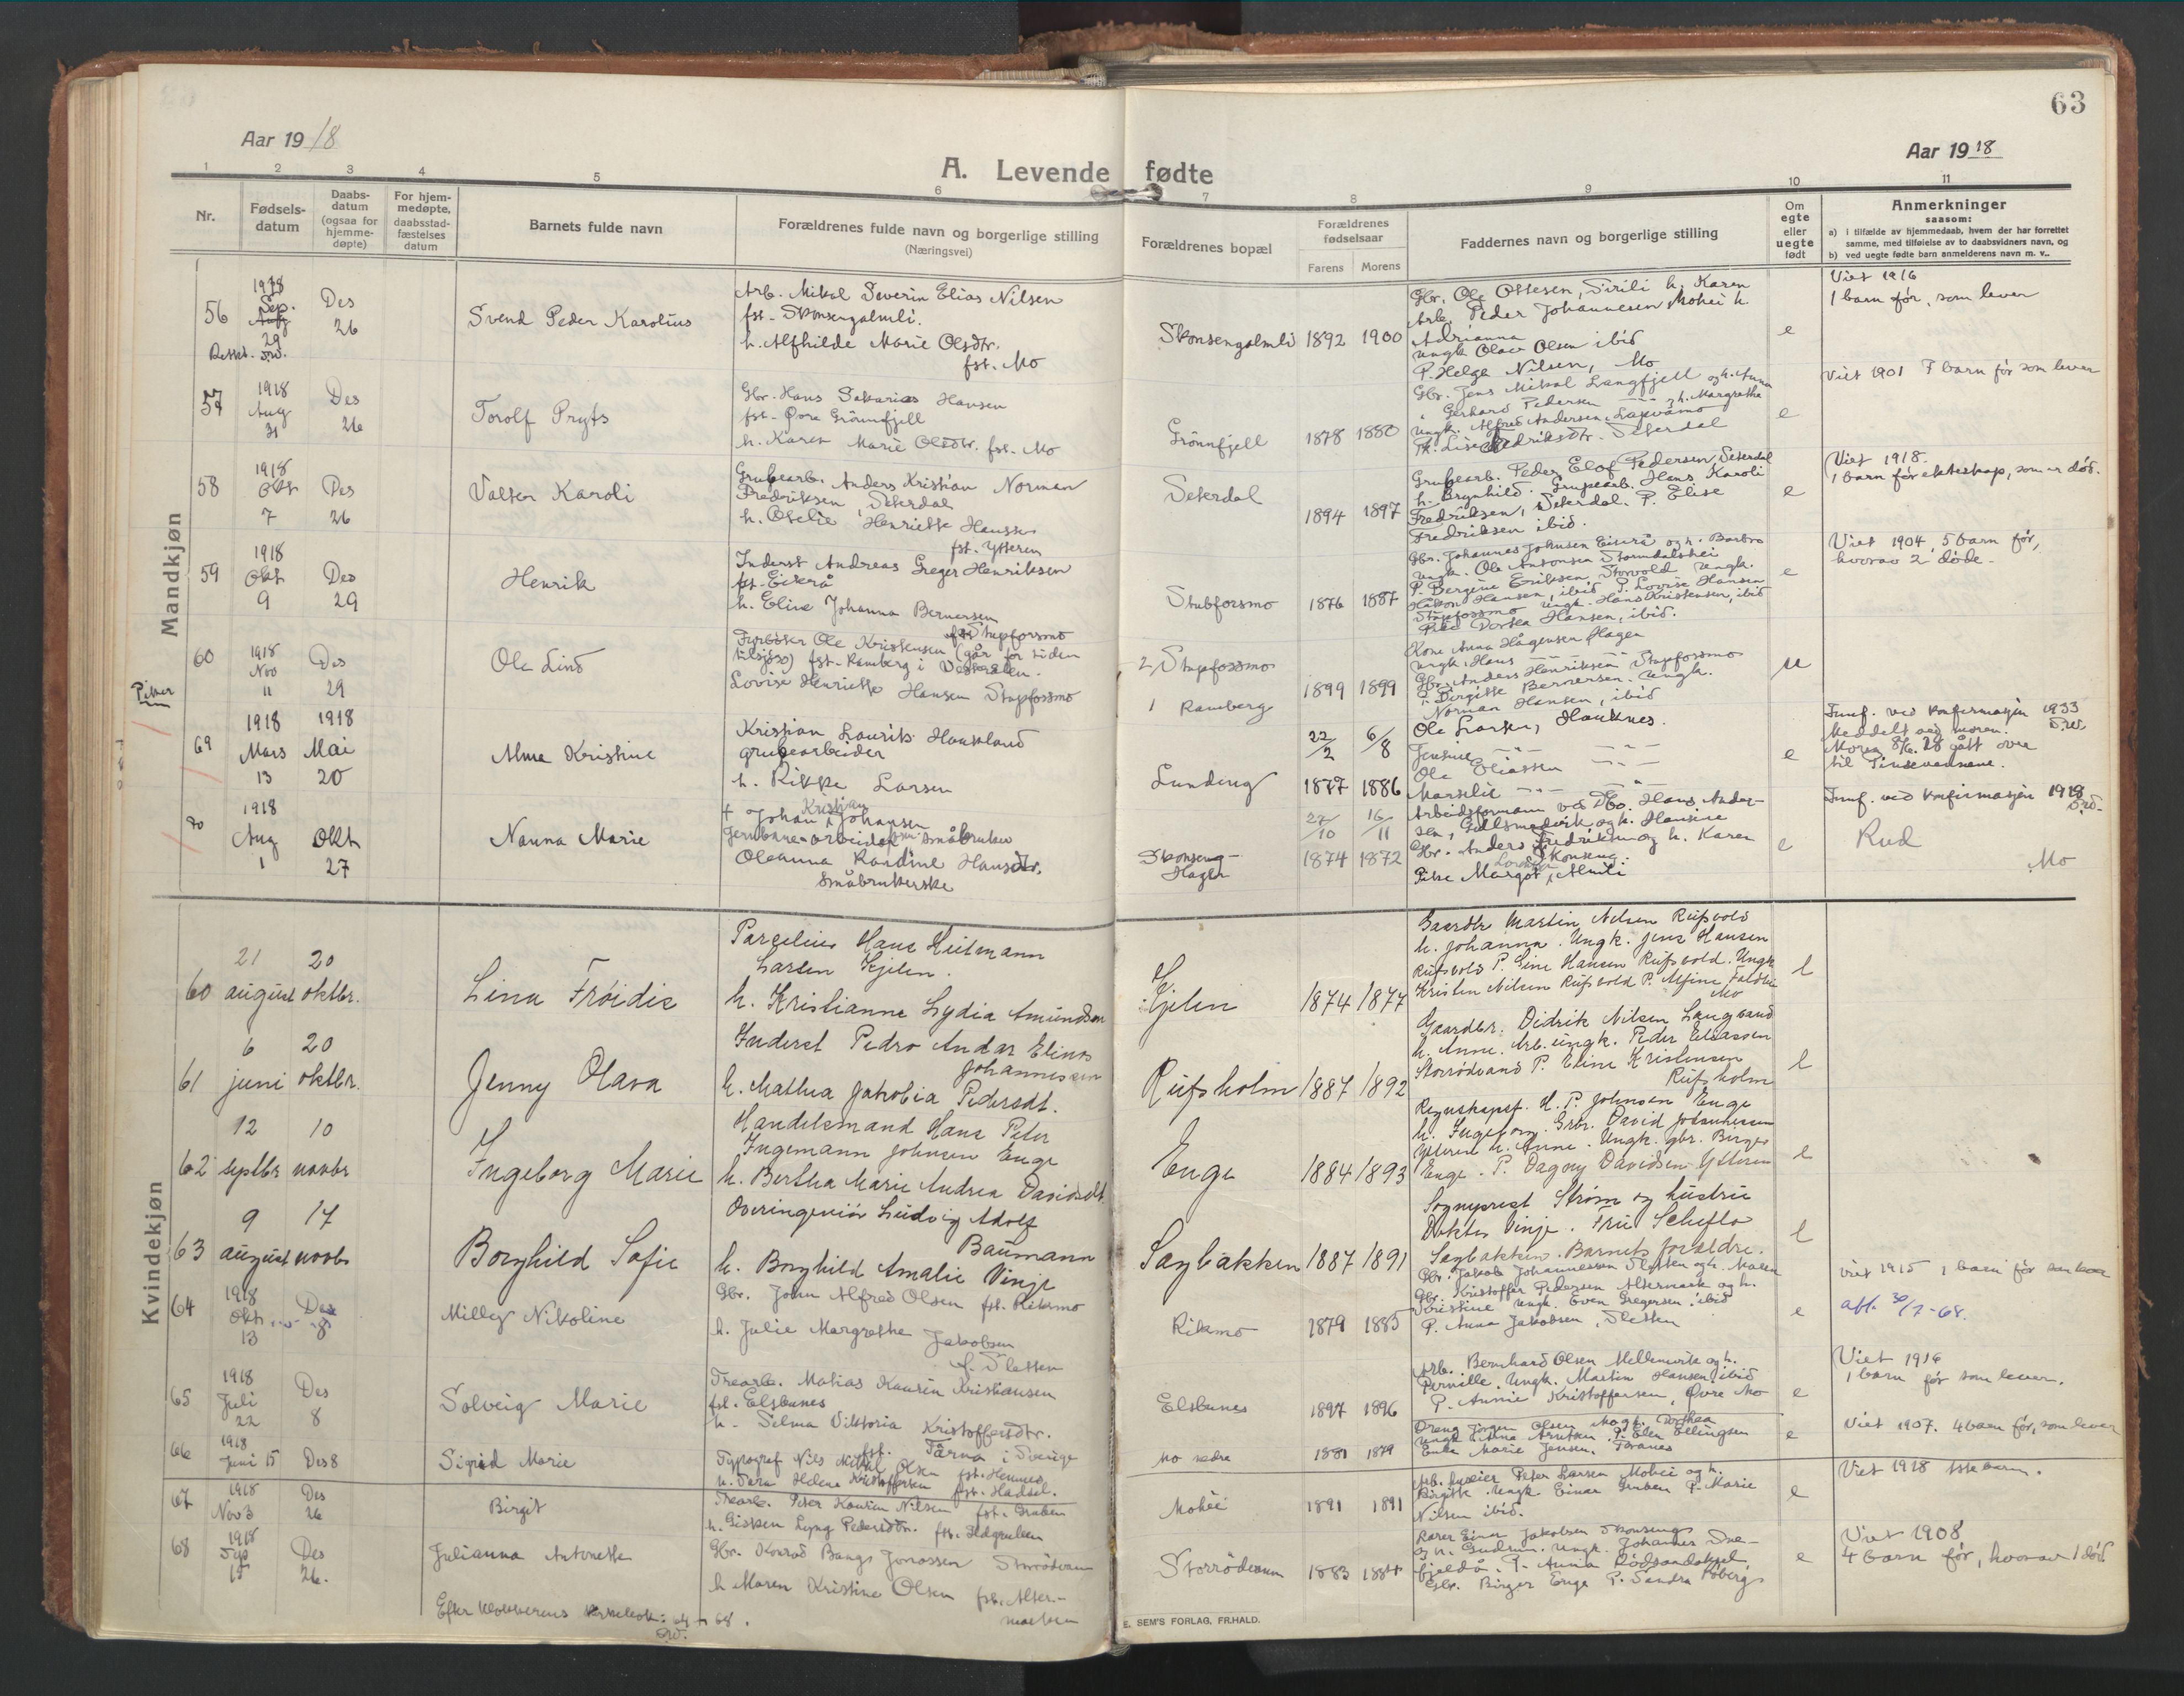 63
Aar 1918
Aar 1918
A. Levende fødte
1 2 3 4 5 6 7 8 9 10 11
Nr.
Fødsels-
datum
Daabs-
datum
(ogsaa for
hjemme-
døpte)
For hjem-
medøpte,
daabsstad-
fæstelses
datum
Barnets fulde navn
Forældrenes fulde navn og borgerlige stilling
(Næringsvei)
Forældrenes bopæl
Forældrenes
fødselsaar
Farens Morens
Faddernes navn og borgerlige stilling
Om
egte
eller
uegte
født
Anmerkninger
saasom:
a) i tilfælde av hjemmedaab, hvem der har forrettet
samme, med tilføielse av to daabsvidners navn, og
b) ved uegte fødte barn anmelderens navn m. v..
Mandkjøn
56
1918
Sep.
29
Des
26
Svend Peder Karolius
Arb. Mikal Severin Elias Nilsen
fst. Skonsengalmli.
h. Alfhilde Marie Olsdtr.
fst. Mo
Skonsengalmli 1892 1900
Gbr. Ole Ottesen, Sirili h. Karen
Arb. Peder Johannesen Mohei h.
Adrianna
ungk Olav Olsen ibid
P. Helga Nilsen, Mo
e
Viet 1916
1 barn før, som lever
57
1918
Aug
31
Des
26
Torolf Pryts
Gbr. Hans Sakarias Hansen
fst. Øvre Grønnfjell
h. Karen Marie Olsdtr. fst. Mo
Grönnfjell 1878 1880
Gbr. Jens Mikal Langfjell og h. Anna
Gerhard Pedersen og h. Margrethe
ungk. Alfred Andersen
e
Viet 1901 7 barn før som lever
58
1918
Okt
7
Des
26
Valter Karoli
Grubearb. Anders Kristian Norman
Fredriksen, Seterdal
h. Otelie Henriette Hansen
fst. Ytteren
Seterdal
1894 1897
Grubearb. Peder Elof Pedersen Seterdal
h. Brynhild. Grupearb. Hans Karoli
Fredriksen, Seterdal. P. Elise
Fredriksen ibid.
e
Viet 1918.
1 barn før ekteskap, som er död.
59
1918
Okt
9
Des
29
Henrik
Inderst Andreas Greger Henriksen
fst. Eiterå
h. Elise Johanna Bernersen
Stupforsmo
Stubforsmo 1876 1887
Gbr. Johannes Johnsen Eiterå og h. Barbro
ungk. Ole Antonsen Stormdalshei
P. Bergine Eriksen, Storvold ungk.
Håkon Hansen, ibid P. Lovise Hansen
Stupforsmo ungk. Hans Kristensen, ibid
Pike Dortea Hansen, ibid.
e
Viet 1904, 5 barn før,
hvorav 2 döde.
60
1918
Nov
11
Des
29
Ole Lind
Fyrböter Ole Kristensen (går for tiden
tilsjøs) fst. Ramberg i Vesterålen.
Lovise Henriette Hansen Stupforsmo
2 Stupforsmo
1 Ramberg
1899 1899
Kone Anna Hågensen Hagen
ungk. Hans
Gbr. Anders Henriksen Stupforsmo
P. Birgitte Bernersen. Ungk.
Norman Hansen, ibid
u
Piker
69
1918
Mars
13
1918
Mai
20
Alma Kristine
Kristian Laurits Haukland
grubearbeider
h. Rikke Larsen
Lundeng
22/2 6/8
1877 1886
Ole Larsen, Hauknes.
Jensine
Ole Eliassen
Marselie
e
Innf. ved konfirmasjon 1933
Meddelt ved moren.
Moren 8/6. 28 gått over
til Pinsevennene.
70
1918
Aug
1
Okt
27
Nanna Marie
+ Johan Kristian Johansen
Jernbane-arbeider småbruker
Oleanna Randine Hansdtr.
småbrukerske
Skonseng-
Hagen
27/10 16/11
1874 1872
Arbeidsformann ved Hans Ander-
sen, Gullsmedvik og h. Hansine
Gbr. Anders Fredriksen og h. Karen
Skonseng.
Pike Margot Lovise Almli
e
Innf. ved konfirmasjon
Rud
Mo
Kvindekjøn
60
21
august
20
oktbr.
Lina Frøidis
Parselleier Hans Heitmann
Larsen Kjelen.
h. Kristianne Lydia Amundsen
Kjelen 1874 1877
Gaardbr Martin Nilsen Rufsvold
h. Johanna. Ungk. Jens Hansen
Rufsvold P. Line Hansen Rufsvold. Ungk
Kristen Nilsen Rufsvold P. Alfine
Mo
e
61
6
juni
20
oktbr.
Jenny Olava
Inderst Pedro Andar Elinus
Johannessen
h. Mathea Jakobia Pedersdt.
Rufsholm 1887 1892
Gaardbr. Didrik Nilsen Langvand
h. Anne. Arb. ungk. Peder Eliassen
Storrödvand P. Eline Kristensen
Rufsholm
e
62
12
septbr
10
novbr
Ingeborg Marie
Handelsmand Hans Peter
Ingemann Johnsen Enge
h. Bertha Marie Andrea Davidsdt.
Enge 1884 1893
Regnskapsf. H. P. Johnsen Enge
h. Ingeborg. Grbr. David Johannessen
Ytteren h. Anne. Ungk. gbr. Birger
Enge. P. Dagny Davidsen Ytteren
e
63
9
august
17
novbr
Borghild Sofie
Overingeniör Ludvig Adolf
Baumann
h. Borghild Amalie Vinje
Sagbakken 1887 1891
Sogneprest Strøm og hustru
Doktor Vinje. Fru Scheflo
Sagbakken. Barnets forældre.
e
64
1918
Okt
13
Des
8
Milly Nikoline
Gbr. John Alfred Olsen fst. Rikmo
h. Julie Margrethe Jakobsen
f. Sletten
Rikmo 1879 1885
Gbr. Jakob Johannessen Sletten og h. Maren
Gbr. Kristoffer Pedersen Altermark og h.
Kristine ungk. Even Gregersen ibid
P. Anna Jakobsen, Sletten
e
viet 1915 1 barn før
att. 30/7-68.
65
1918
Juli
22
Des
8
Solveig Marie
Trearb. Matias Kaurin Kristiansen
fst. Elsbunes
h. Selma Viktoria Kristoffersdtr.
fst. Tärna i Sverige
Elsbunes 1897 1896
Arb. Bernhard Olsen Mellemvik og h.
Pernille. Ungk. Martin Hansen, ibid
P. Annie Kristoffersen, Øvre Mo
e
Viet 1916
1 barn før som lever.
66
1918
Juni 15
Des 8
Sigrid Marie
Typograf Nils Mikal Olsen fst. Hemnes
h. Sara Helene Kristoffersen fst. Hadsel.
Mo nedre 1881 1879
Dreng Jörgen Olsen
ungk. Arntsen, P. Elen Ellingsen
Enke Marie Jensen, Toranes
e
Viet 1907. 4 barn før, som lever
67
1918
Nov 3
Des
26
Birgit
Trearb. Peter Kaurin Nilsen fst. Gruben
h. Gisken Lyng Pedersdtr. fst. Ildgruben
Mohei 1891 1891
Arb. huseier Peter Larsen Mohei og h.
Birgitte. ungk Einar Gruben P. Marie
Nilsen ibid.
e
Viet 1918 1ste barn.
68
1918
Sep
15
Des
26.
Julianna Antonette
Gbr. Konrad Bangs Jonassen Storrödvann
h Maren Kristine Olsen fst. Alter-
marken
Storrödvann 1883 1884
Einar Jakobsen Skonseng
og h. Gudrun. ungk. Johannes
P. Anna
Gbr. Birger Enge P. Sandra
e
Viet 1908
4 barn før, hvorav 1 död
Efter klokkerens kirkebok: 64-68.
E. SEM'S FORLAG, FR.HALD.